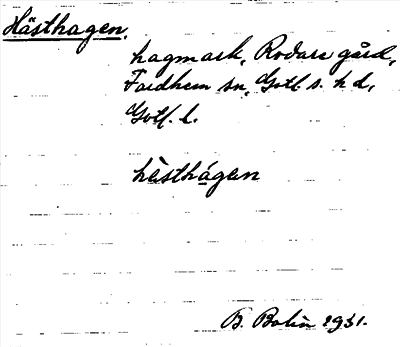 Hästhagen.
hagmark, Rodare gård,
Fardhem sn, Gotl. s. hd,
Gotl. l.
hèsthá̱gen
B. Bolin 1931.